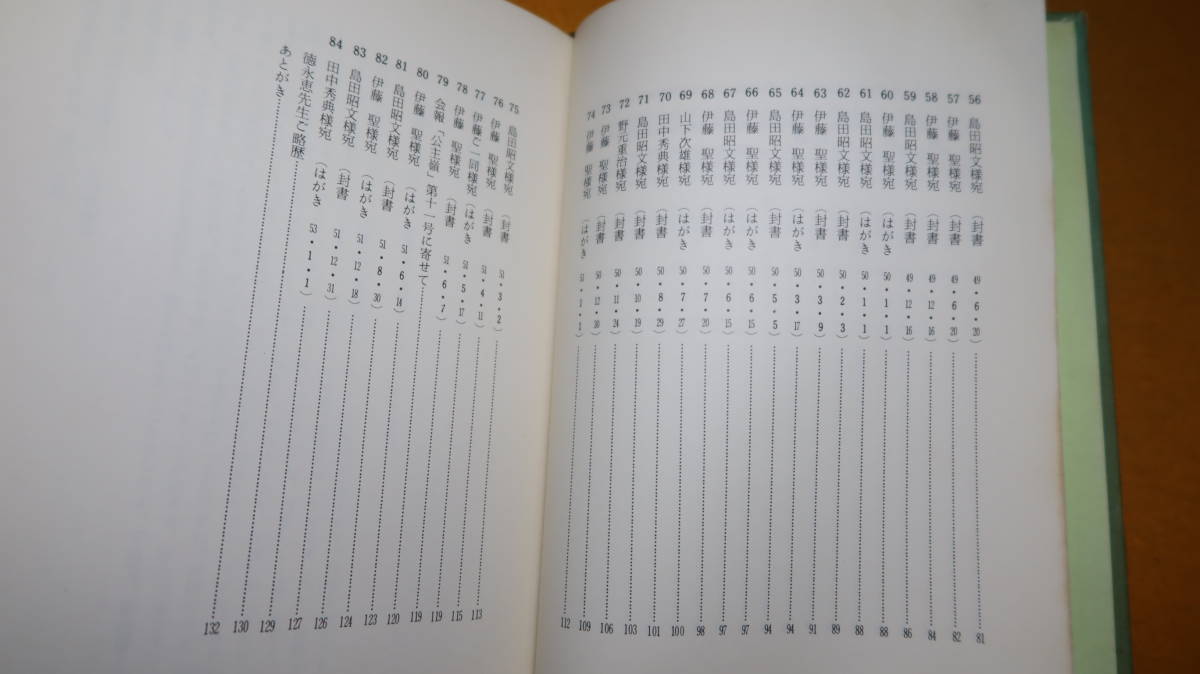 56 島田昭文様宛 (封書 49・6・20)……81
57 伊藤 聖様宛 (封書 49・6・20)……82
58 伊藤 聖様宛 (封書 49・12・16)……84
59 島田昭文様宛 (封書 49・12・16)……86
60 伊藤 聖様宛 (はがき 50・1・1)……88
61 島田昭文様宛 (はがき 50・1・1)……88
62 島田昭文様宛 (封書 50・2・3)……89
63 伊藤 聖様宛 (封書 50・3・9)……91
64 伊藤 聖様宛 (はがき 50・3・17)……94
65 島田昭文様宛 (封書 50・5・5)……94
66 伊藤 聖様宛 (封書 50・6・15)……97
67 島田昭文様宛 (はがき 50・6・15)……97
68 伊藤 聖様宛 (封書 50・7・20)……98
69 山下次雄様宛 (はがき 50・7・27)……100
70 田中秀典様宛 (封書 50・8・29)……101
71 島田昭文様宛 (封書 50・10・19)……103
72 野元重治様宛 (封書 50・11・24)……106
73 伊藤 聖様宛 (封書 50・12・30)……109
74 伊藤 聖様宛 (はがき 51・1・1)……112
75 島田昭文様宛 (封書 51・3・2)……113
76 伊藤 聖様宛 (封書 51・4・11)……115
77 伊藤ご一同様宛 (はがき 51・5・17)……119
78 伊藤 聖様宛 (封書 51・6・7)……119
79 会報「公主嶺」第十一号に寄せて……120
80 伊藤 聖様宛 (はがき 51・6・14)……123
81 島田昭文様宛 (封書 51・8・30)……124
82 伊藤 聖様宛 (はがき 51・12・18)……126
83 島田昭文様宛 (封書 51・12・31)……127
84 田中秀典様宛 (はがき 53・1・1)……129
徳永恵先生ご略歴……130
あとがき……132